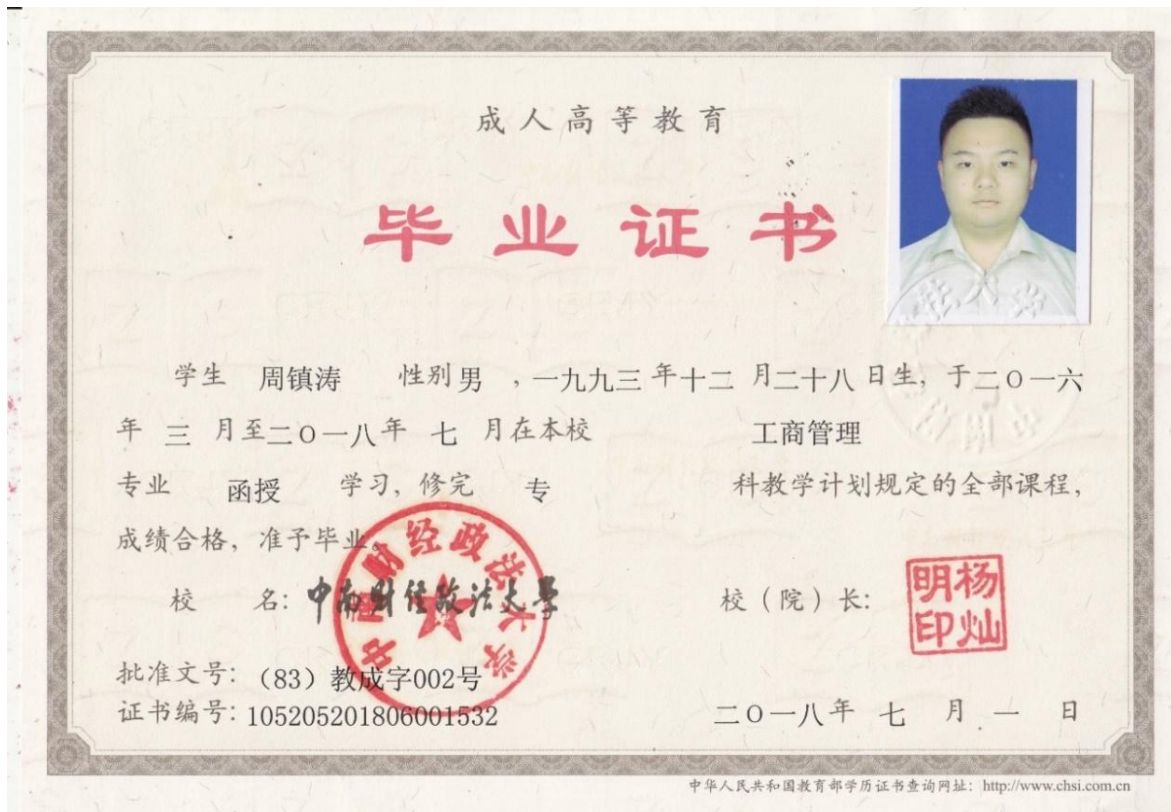 成人高等教育
毕业证书
学生 周镇涛 性别 男 ，一九九三 年 十二 月 二十八 日生，于 二〇一六
年 三 月至 二〇一八 年 七 月在本校 工商管理
专业 函授 学习，修完 专 科教学计划规定的全部课程，
成绩合格，准予毕业。
校 名：中南财经政法大学 校（院）长：
中南财经政法大学
杨灿明印
批准文号：（83）教成字002号
证书编号：105205201806001532 二〇一八 年 七 月 一 日
中华人民共和国教育部学历证书查询网址：http://www.chsi.com.cn